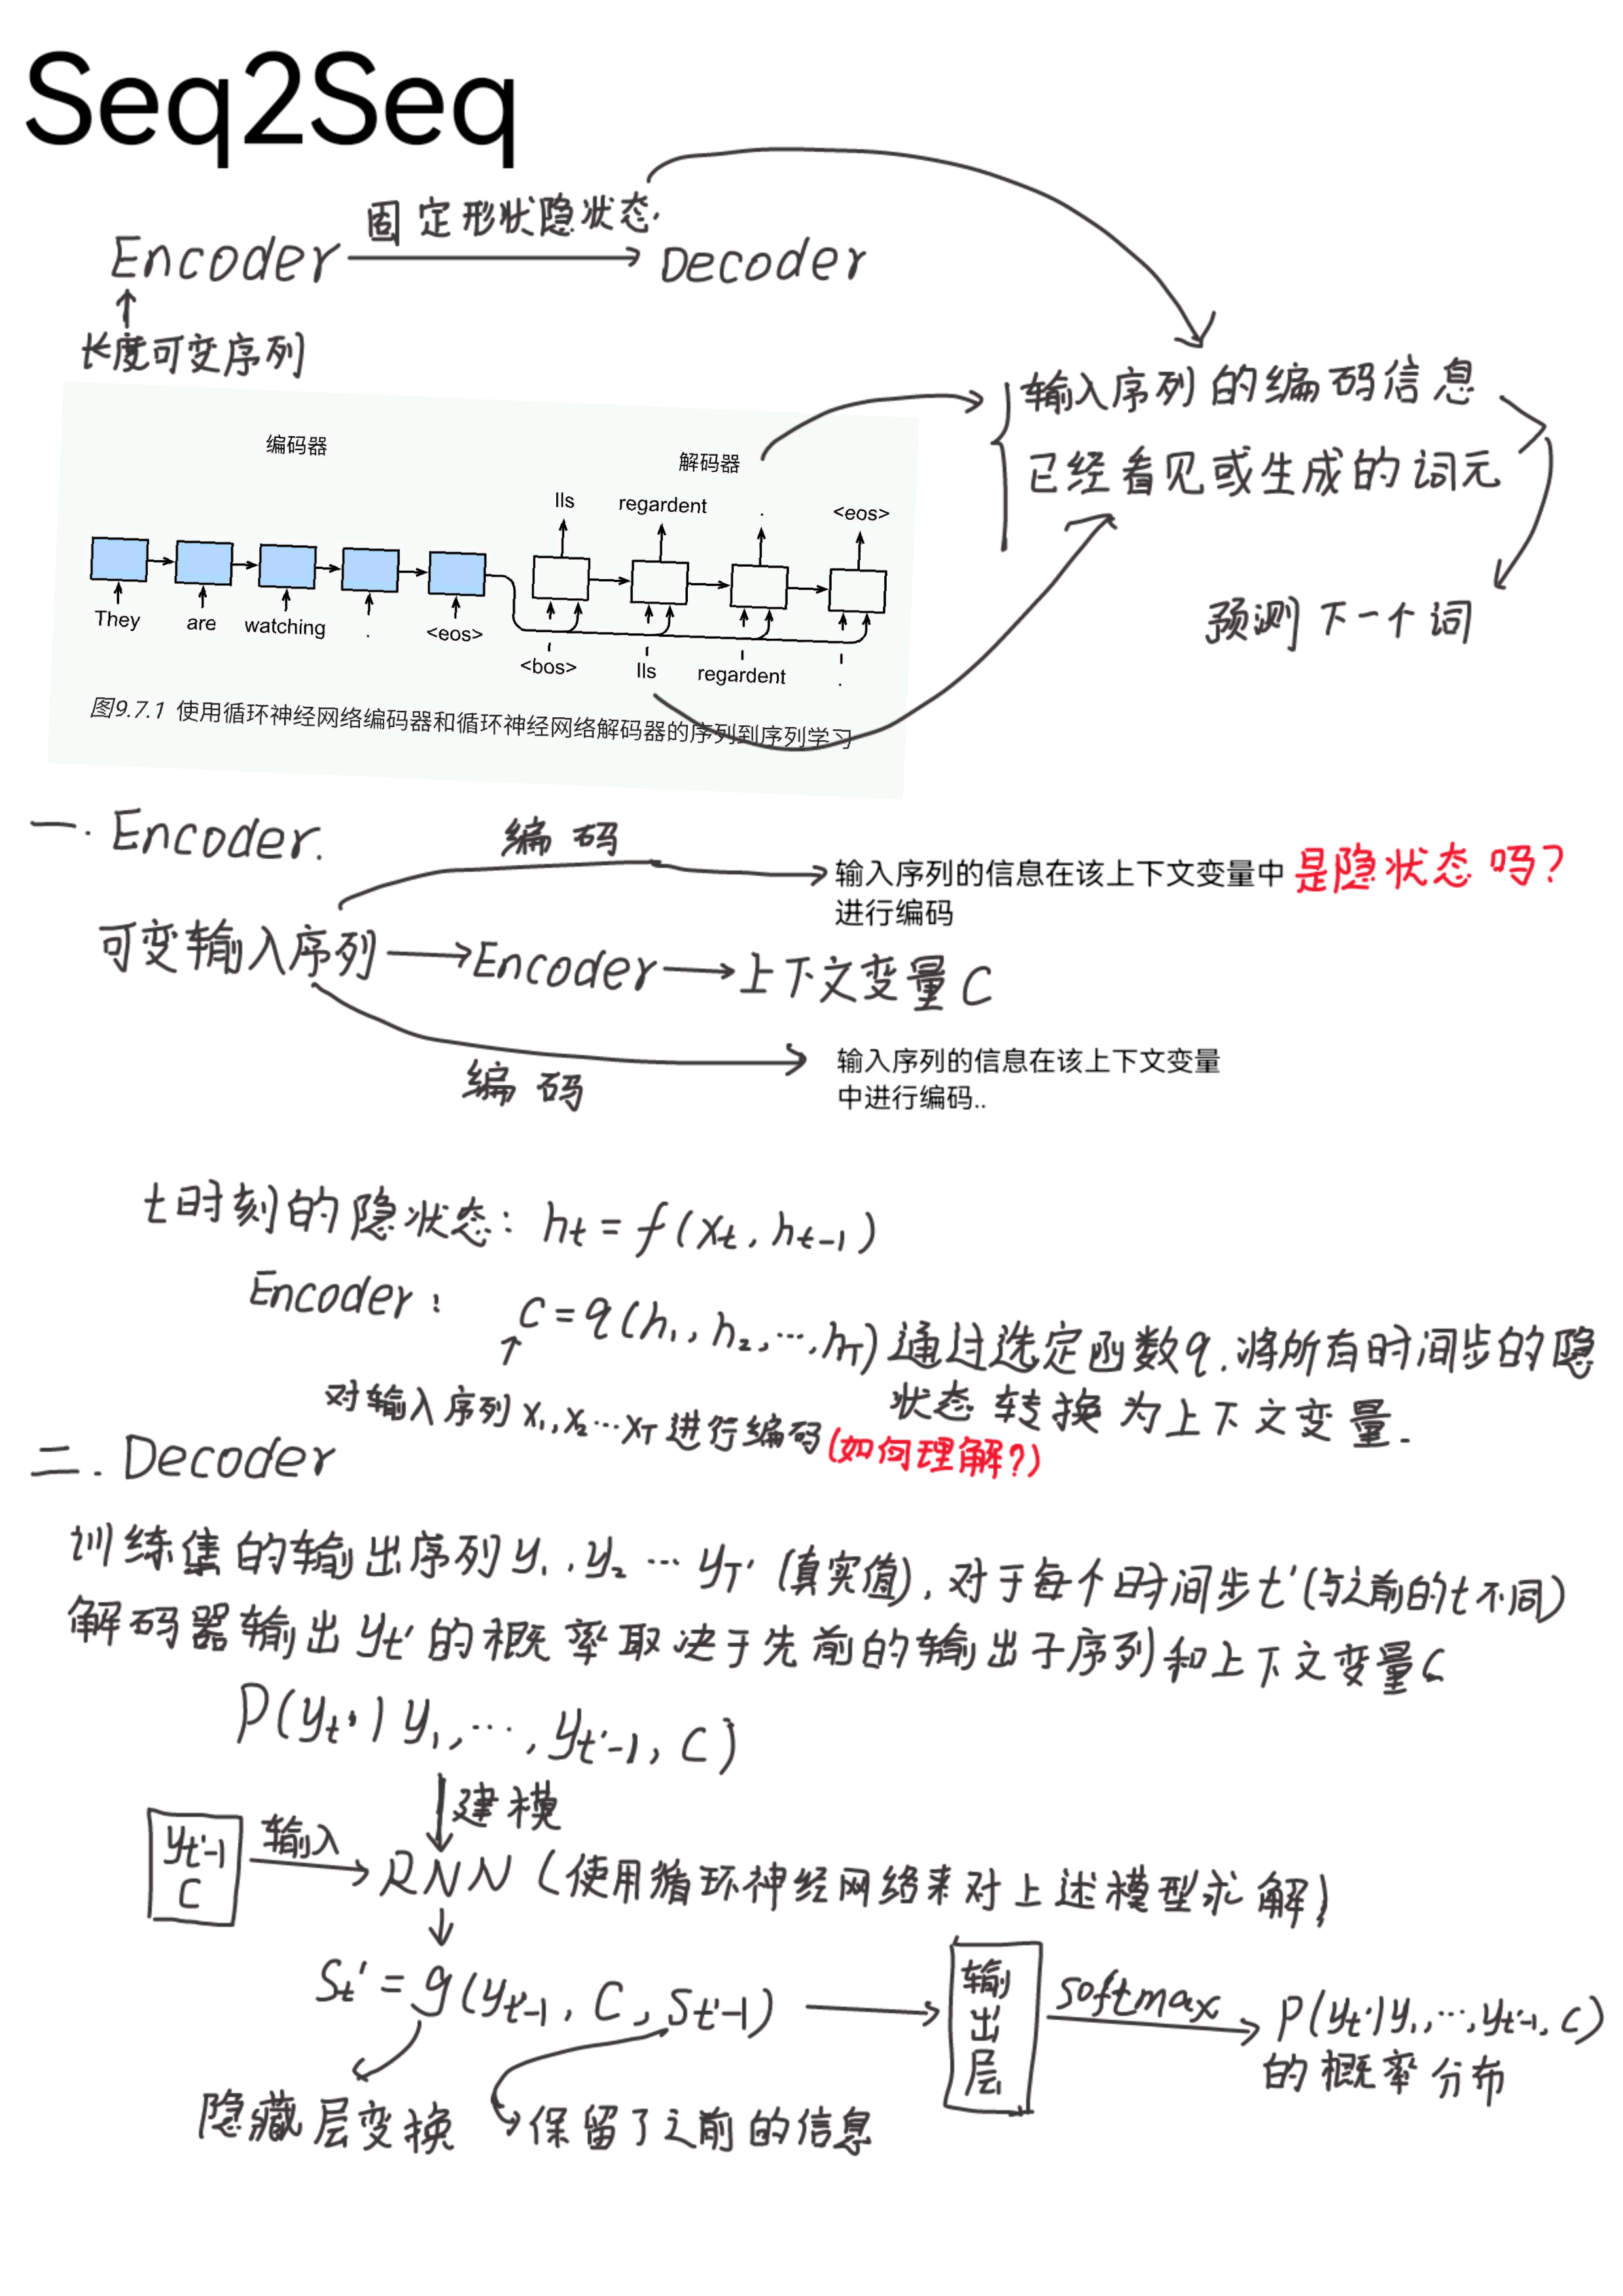 Seq2Seq
固定形状隐状态.
Encoder → Decoder
长度可变序列
输入序列的编码信息
已经看见或生成的词元
预测下一个词
编码器
解码器
lls regardent . <eos>
They are watching . <eos>
<bos> lls regardent .
图9.7.1 使用循环神经网络编码器和循环神经网络解码器的序列到序列学习
一. Encoder.
编码
输入序列的信息在该上下文变量中
进行编码
是隐状态吗?
可变输入序列 → Encoder → 上下文变量 C
编码
输入序列的信息在该上下文变量
中进行编码..
t时刻的隐状态: ht = f(xt, ht-1)
Encoder: C = q(h1, h2, ..., hT) 通过选定函数q.将所有时间步的隐
状态转换为上下文变量.
对输入序列 x1, x2 ... xT 进行编码(如何理解?)
二. Decoder
训练集的输出序列 y1, y2 ... yT' (真实值), 对于每个时间步t'(与之前的t不同)
解码器输出 yt' 的概率取决于先前的输出子序列和上下文变量C
P(yt'| y1, ..., yt'-1, C)
建模
yt'-1
C
输入
RNN (使用循环神经网络来对上述模型求解)
St' = g(yt'-1, C, St'-1)
输出层
softmax
P(yt'|y1, ..., yt'-1, C)
的概率分布
隐藏层变换
保留了之前的信息